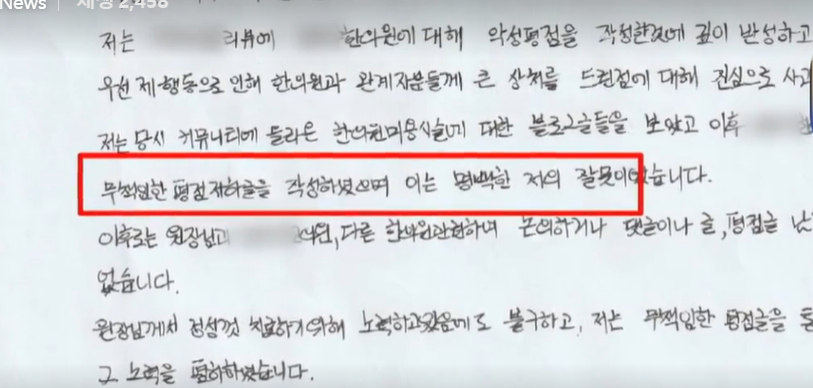 News | 재생 2,458
저는 리뷰에 한의원에 대해 악성평점을 작성한것에 깊이 반성하고
우선 제 행동으로 인해 한의원과 관계자분들께 큰 상처를 드린점에 대해 진심으로 사과
저는 당시 커뮤니티에 올라온 한의원미용시술에 대한 블로그글들을 보았고 이후
무책임한 평점저하글을 작성하였으며 이는 명백한 저의 잘못이었습니다.
이후로는 원장님과 의원, 다른 한의원관련하여 논의하거나 댓글이나 글, 평점글 남
없습니다.
원장님께서 정성껏 치료하기위해 노력하고있음에도 불구하고, 저는 무책임한 평점글을 통
그 노력을 폄하하였습니다.